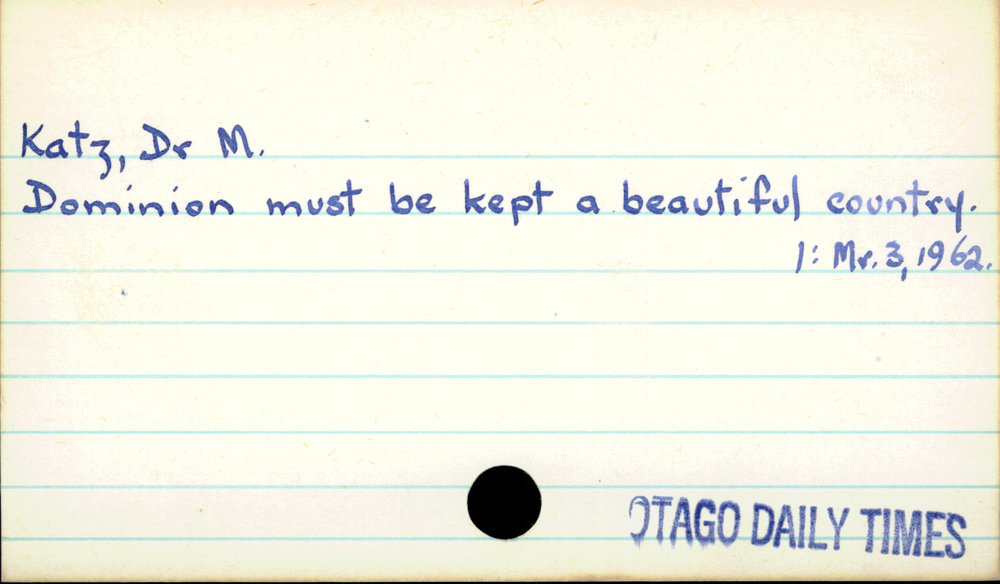 Katz, Dr M.
Dominion must be kept a beautiful country.
1: Mr. 3, 1962.
OTAGO DAILY TIMES